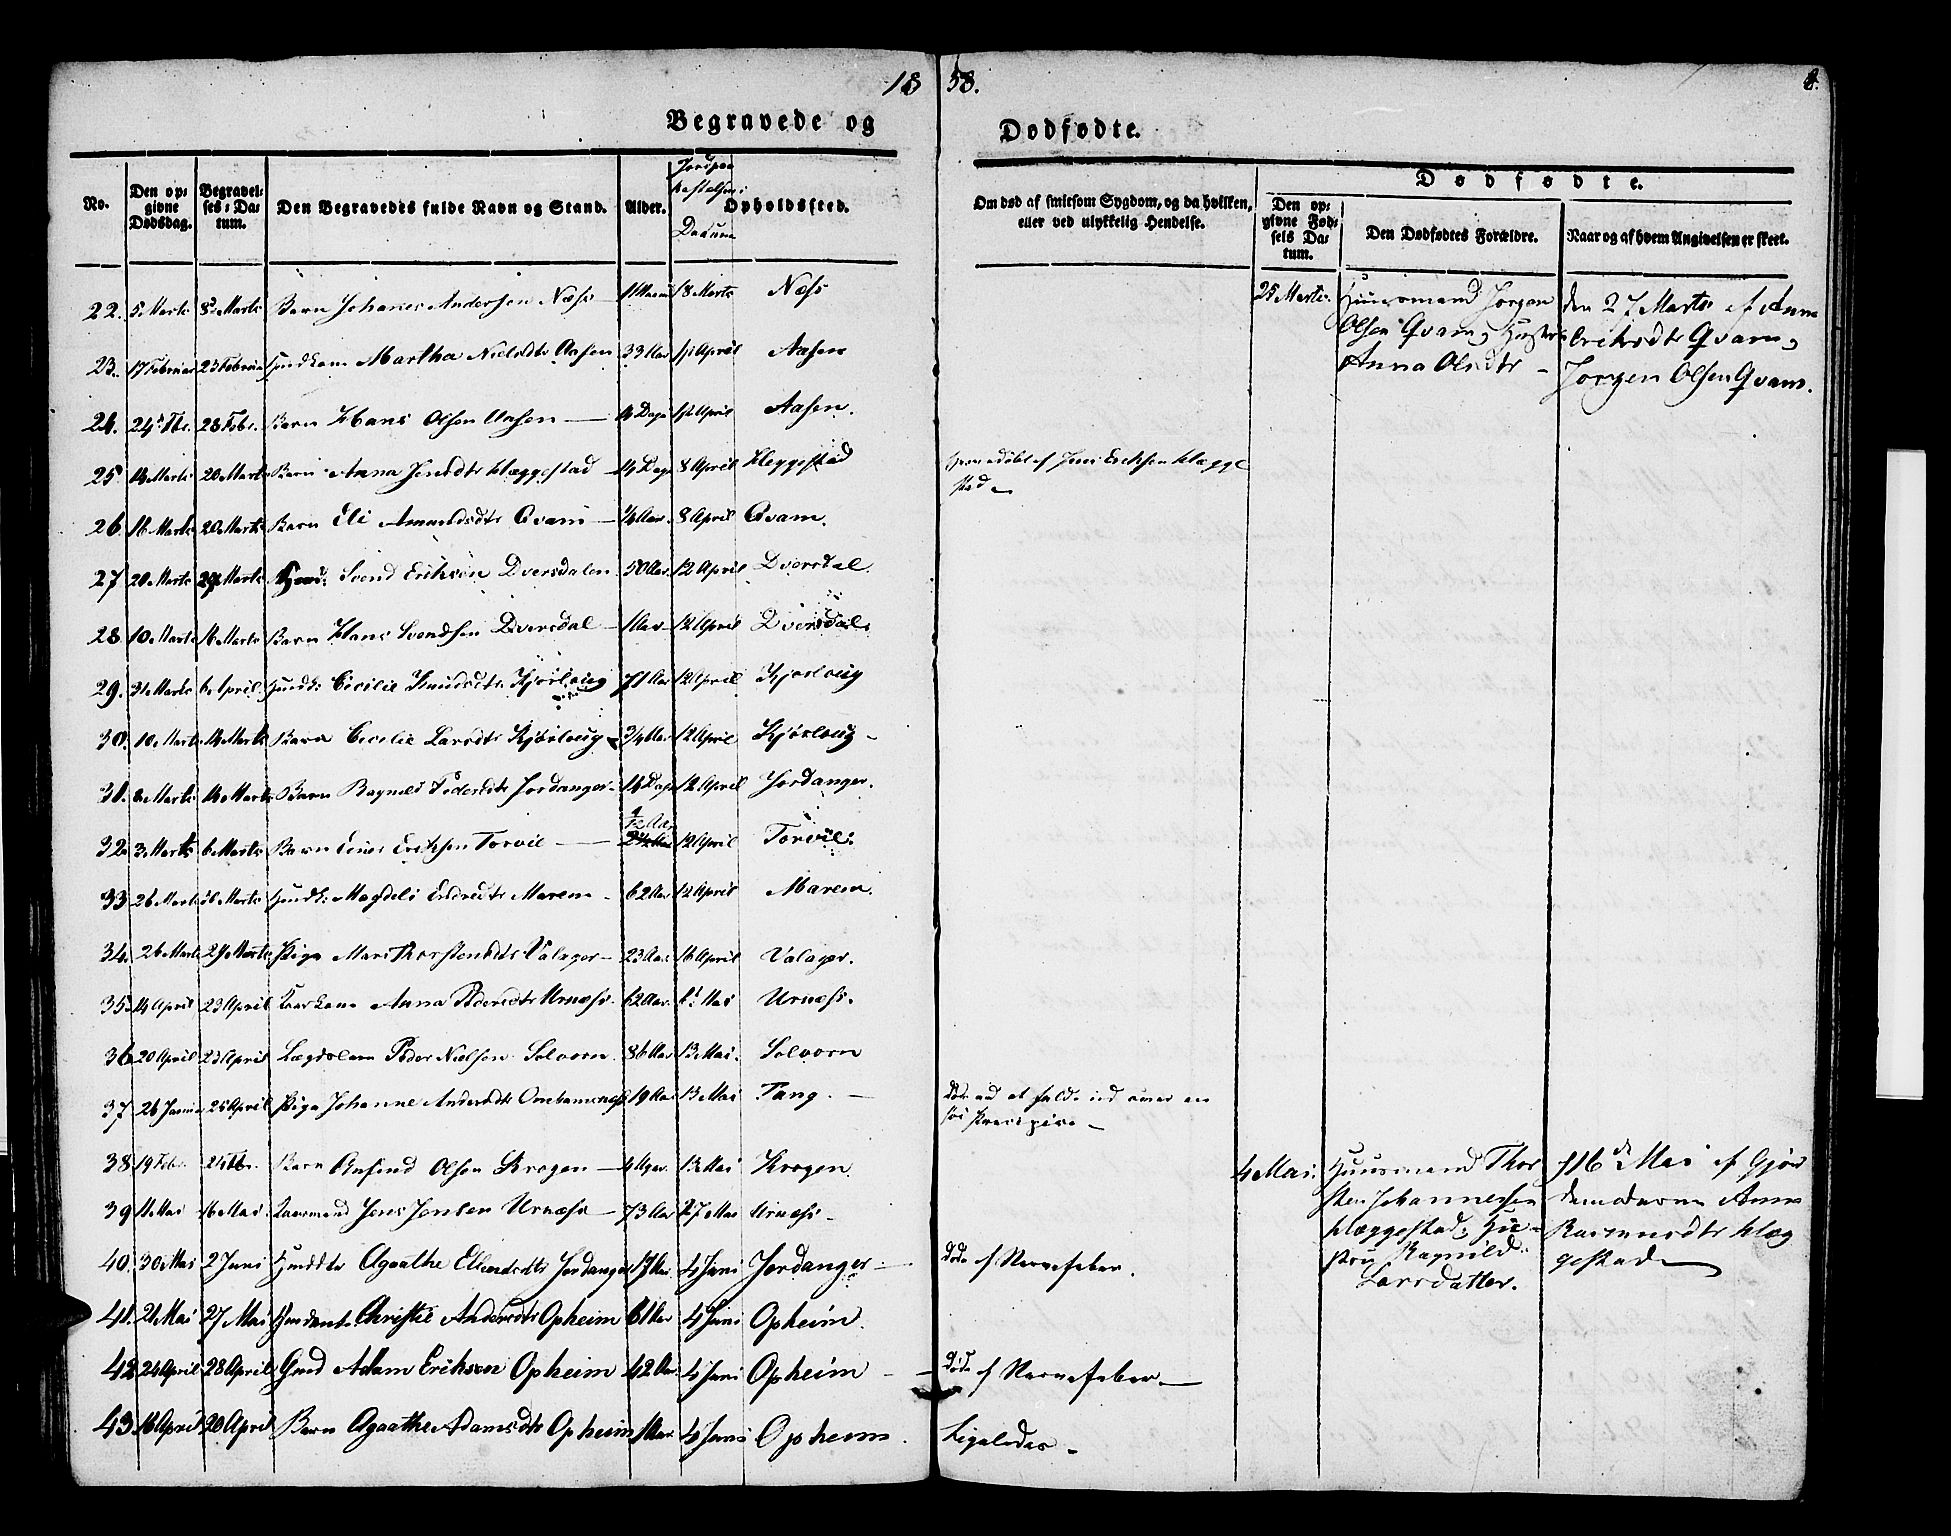 18 58.
8.
Begravede og Dødfødte.
No.
Den op-
givne
Dødsdag.
Begravel-
ses-Da-
tum.
Den Begravedes fulde Navn og Stand.
Alder.
Jordpaa-
kastelsens
Datum
Opholdsted.
Om død af smitsom Sygdom, og da hvilken,
eller ved ulykkelig Hendelse.
Dødfødte.
Den op-
givne Fød-
sels Da-
tum.
Den Dødfødtes Forældre.
Naar og af hvem Angivelsen er skeet.
22. 5 Marts 8 Marts Barn Johanes Andersen Næss 18 Marts Næss
23. 17 Februar 23 Februar Huuskone Martha Nielsdtr Aasen 33 Aar April Aasen
24. 24 Fbr. 28 Febr. Barn Hans Olsen Aasen 4 Dage April Aasen.
25 14 Marts 20 Marts Barn Anna Jensdtr Klæggestad 14 Dage 8 April Kleggestad
Hjemmedøbt af Jens Eriksen Klægge
stad
26. 16 Marts 20 Marts Barn Eli Amundsdtr Qvam 8 April Qvam.
27 20 Marts 29 Marts Svend Eriksen Dversdalen 50 Aar 12 April Dversdal
28 10 Marts 16 Marts Barn Hans Svendsen Dversdal 1 Aar 12 April Dversdal
29. 31 Marts 6 April Cecilie Knudsdtr Kjørloug 71 Aar 12 April Kjørloug
30. 10 Marts 14 Marts Barn Cecilie Larsdtr Kjørloug 3/4 Aar 12 April Kjørloug
31. 8 Marts 14 Marts Barn Ragnild Pedersdtr Jordanger 14 Dage 12 April Jordanger.
32 3 Marts 6 Marts Barn Eriksen Torvil 1/2 Aar 12 April Torvil
33 26 Marts 31 Marts Magdeli Endredtr Marem 62 Aar 12 April Marem.
34. 26 Marts 29 Marts Pige Mari Thorstensdtr Valager 23 Aar 16 April Valager.
35. 14 April 23 April Kaarkone Anna Pedersdtr Urnæss 62 Aar 6 Mai Urnæss.
36 20 April 23 April Lægdslem Peder Nielsen Solvorn 86 Aar 13 Mai Solvorn
37 26 25 April Pige Johanne Andersdtr 19 Aar 13 Mai Tang.
Død ved at falde ud over en
38. 19 Febr. Barn Anfind Olsen Krogen 4 Aar 13 Mai Krogen
39 11 Mai 16 Mai Kaarmand Jens Jensen Urnæss 73 Aar 27 Mai Urnæss
40. 30 Mai 2 Juni Agaathe Ellendsdtr Jordanger 4 Juni Jordanger
Død af Nervefeber.
41. 21 Mai 27 Mai Christie Andersdtr Opheim 61 Aar 4 Juni Opheim.
42 24 April 28 April Gmd Adam Eriksen Opheim 42 Aar 4 Juni Opheim
Død af Nervefeber
43. 16 April 20 April Barn Agaathe Adamsdtr Opheim 1 Aar 4 Juni Opheim.
Ligeledes
25 Marts.
Huusmand Jørgen
Olsen Qvam, Hustru
Anna Olsdtr
den 27 Marts af Anna
Eriksdtr Qvam,
Jørgen Olsen Qvam.
4 Mai.
Huusmand Thor
sten Johannessen
Klæggestad, Hu-
stru Ragnild
Larsdatter.
16 Mai af Gjor
demoderen Anna
Rasmusdtr Klæg
gestad